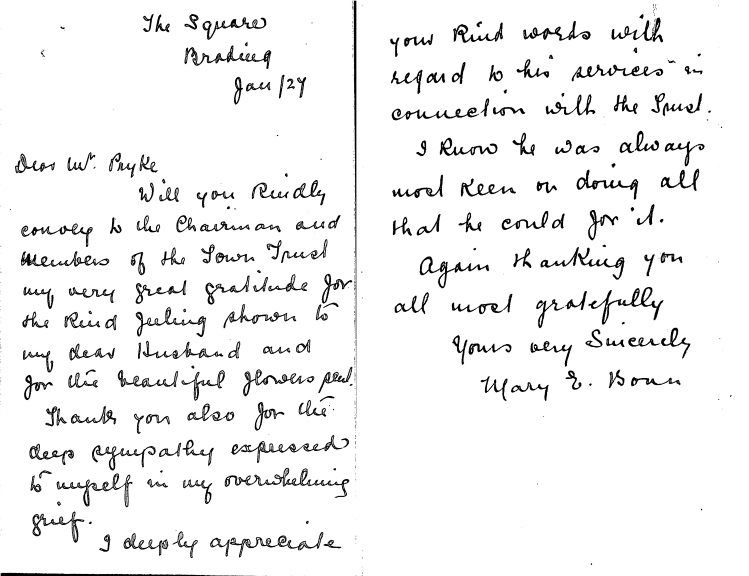 The Square
Brading
Jan/27
Dear Mr. Pryke
Will you kindly
convey to the Chairman and
members of the Town Trust
my very great gratitude for
the kind feeling shown to
my dear Husband and
for the beautiful flowers sent.
Thank you also for the
deep sympathy expressed
to myself in my overwhelming
grief.
I deeply appreciate
your kind words with
regard to his services in
connection with the Trust.
I know he was always
most keen on doing all
that he could for it.
Again thanking you
all most gratefully
Yours very Sincerely
Mary E.